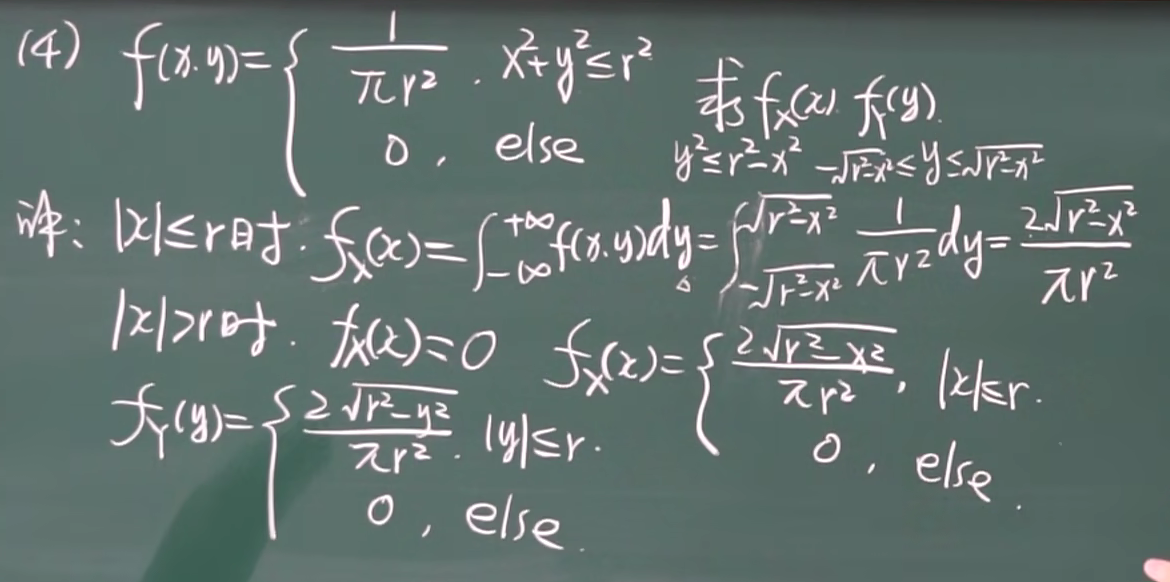 (4) f(x.y)={ 1/πr² . x²+y²≤r²
0 , else
求 f_X(x). f_Y(y).
y²≤r²-x² -√(r²-x²)≤y≤√(r²-x²)
解: |x|≤r时. f_X(x)=∫_{-∞}^{+∞}f(x.y)dy=∫_{-√(r²-x²)}^{√(r²-x²)} 1/πr² dy= 2√(r²-x²)/πr²
|x|>r时. f_X(x)=0 f_X(x)={ 2√(r²-x²)/πr² , |x|≤r.
0 , else.
f_Y(y)={ 2√(r²-y²)/πr² . |y|≤r.
0 , else.